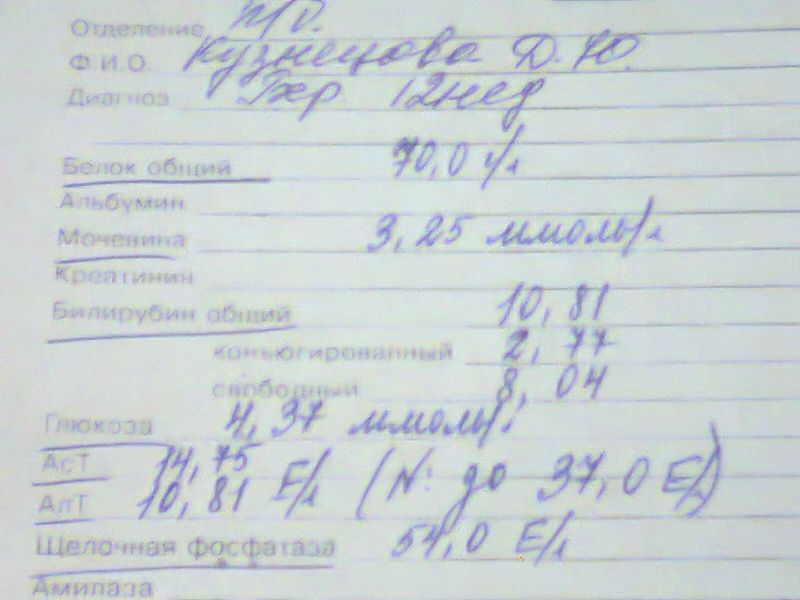 Отделение ж/о.
Ф.И.О. Кузнецова Д.Ю.
Диагноз Бер 12нед
Белок общий 70,0 г/л
Альбумин
Мочевина 3,25 ммоль/л
Креатинин
Билирубин общий 10,81
конъюгированный 2,77
свободный 8,04
Глюкоза 4,37 ммоль/л
АсТ 14,75
АлТ 10,81 Е/л (N: до 37,0 Е/л)
Щелочная фосфатаза 54,0 Е/л
Амилаза